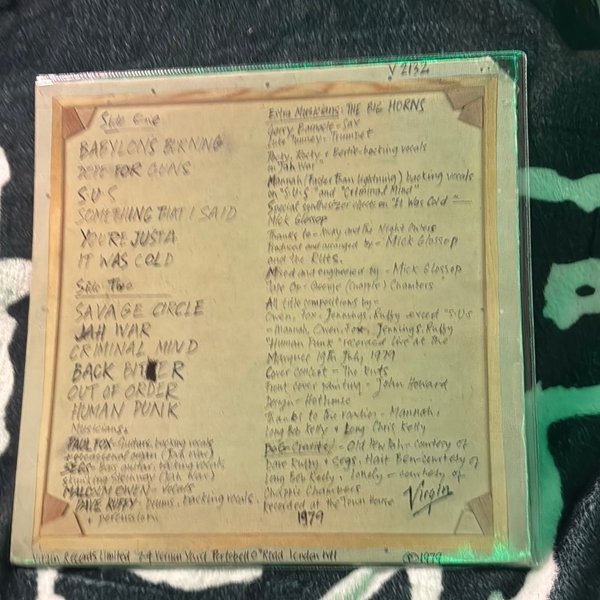 V2132
Side One
BABYLON'S BURNING
DOPE FOR GUNS
S·U·S
SOMETHING THAT I SAID
YOU'RE JUST A
IT WAS COLD
Side Two
SAVAGE CIRCLE
JAH WAR
CRIMINAL MIND
BACK BITER
OUT OF ORDER
HUMAN PUNK
Musicians
PAUL FOX - Guitars, backing vocals
organ (Jah War)
SEGS - Bass guitar, backing vocals
(Jah War)
MALCOLM OWEN - vocals
DAVE RUFFY - Drums, backing vocals,
+ percussion
Extra Musicians: THE BIG HORNS
Gary Barnacle - Sax
Luke Tunney - Trumpet
Rocky + Bertie - backing vocals
on "Jah War"
Mannah (Faster than lightning) backing vocals
on "S·U·S" and "Criminal Mind"
Special synthesizer effects on "It Was Cold" -
Mick Glossop
Thanks to - Andy and the Night Owers
Produced and arranged by - Mick Glossop
and the Ruts.
Mixed and engineered by - Mick Glossop
Tape Op - George (Chapple) Chambers
All title compositions by -
Owen, Fox, Jennings, Ruffy except "S·U·S"
- Mannah, Owen, Fox, Jennings, Ruffy
"Human Punk" recorded live at the
Marquee 19th July, 1979
Cover concept - The Ruts
Front cover painting - John Howard
Design - Hothouse
Thanks to the roadies - Mannah,
Long Bob Kelly + Long Chris Kelly
- courtesy of
Dave Ruffy + Segs, - courtesy of
Long Bob Kelly, lonely - courtesy of
Chapple Chambers
Recorded at the Town House
1979
Virgin
Virgin Records Limited 2-4 Vernon Yard Portobello Road London W11
℗ 1979